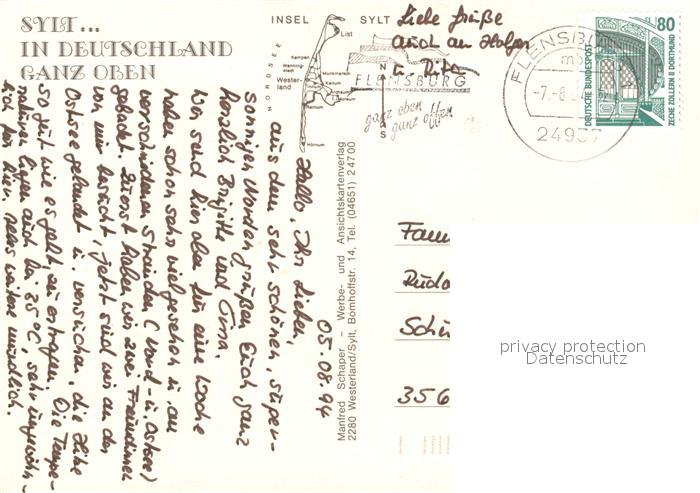 SYLT...
IN DEUTSCHLAND
GANZ OBEN
INSEL SYLT
NORDSEE
List
Kampen
Wenning-
stedt
Wester-
land
Rantum
Hörnum
Liebe Grüße
auch an Holger
u. Rita
FLENSBURG
ganz oben
ganz offen
FLENSBU
24937
80
DEUTSCHE BUNDESPOST
ZECHE ZOLLERN II DORTMUND
05.08.94
Hallo, Ihr Lieben,
aus dem sehr schönen, super-
sonnigen Norden grüßen Euch ganz
herzlich Brigitte und
Wir sind hier oben für eine Woche
haben schon sehr viel gesehen u. an
verschiedenen Stränden (Nord- u. Ostsee)
gebadet. Zuerst haben wir zwei Freundinnen
von mir besucht, jetzt sind wir an der
Ostsee gelandet u. versuchen, die Hitze
so gut wie es geht, zu ertragen. Die Tempe-
raturen liegen auch bei 35°C, sehr ungewöhn-
lich für hier. Alles weitere mündlich.
Manfred Schaper – Werbe- und Ansichtskartenverlag
2280 Westerland/Sylt, Bomhoffstr. 14, Tel. (04651) 24700
Fam
Rudo
Schü
356
privacy protection
Datenschutz